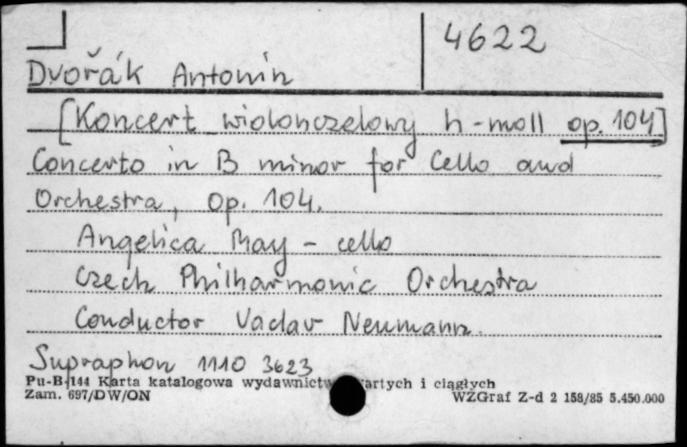 4622
Dvořák Antonín
[Koncert wiolonczelowy h-moll op. 104]
Concerto in B minor for Cello and
Orchestra, Op. 104.
Angelica May - cello
Czech Philharmonic Orchestra
Conductor Vaclav Neumann.
Supraphon 1110 3623
Pu-B-144 Karta katalogowa wydawnictw wartych i ciągłych
Zam. 697/DW/ON WZGraf Z-d 2 158/85 5.450.000